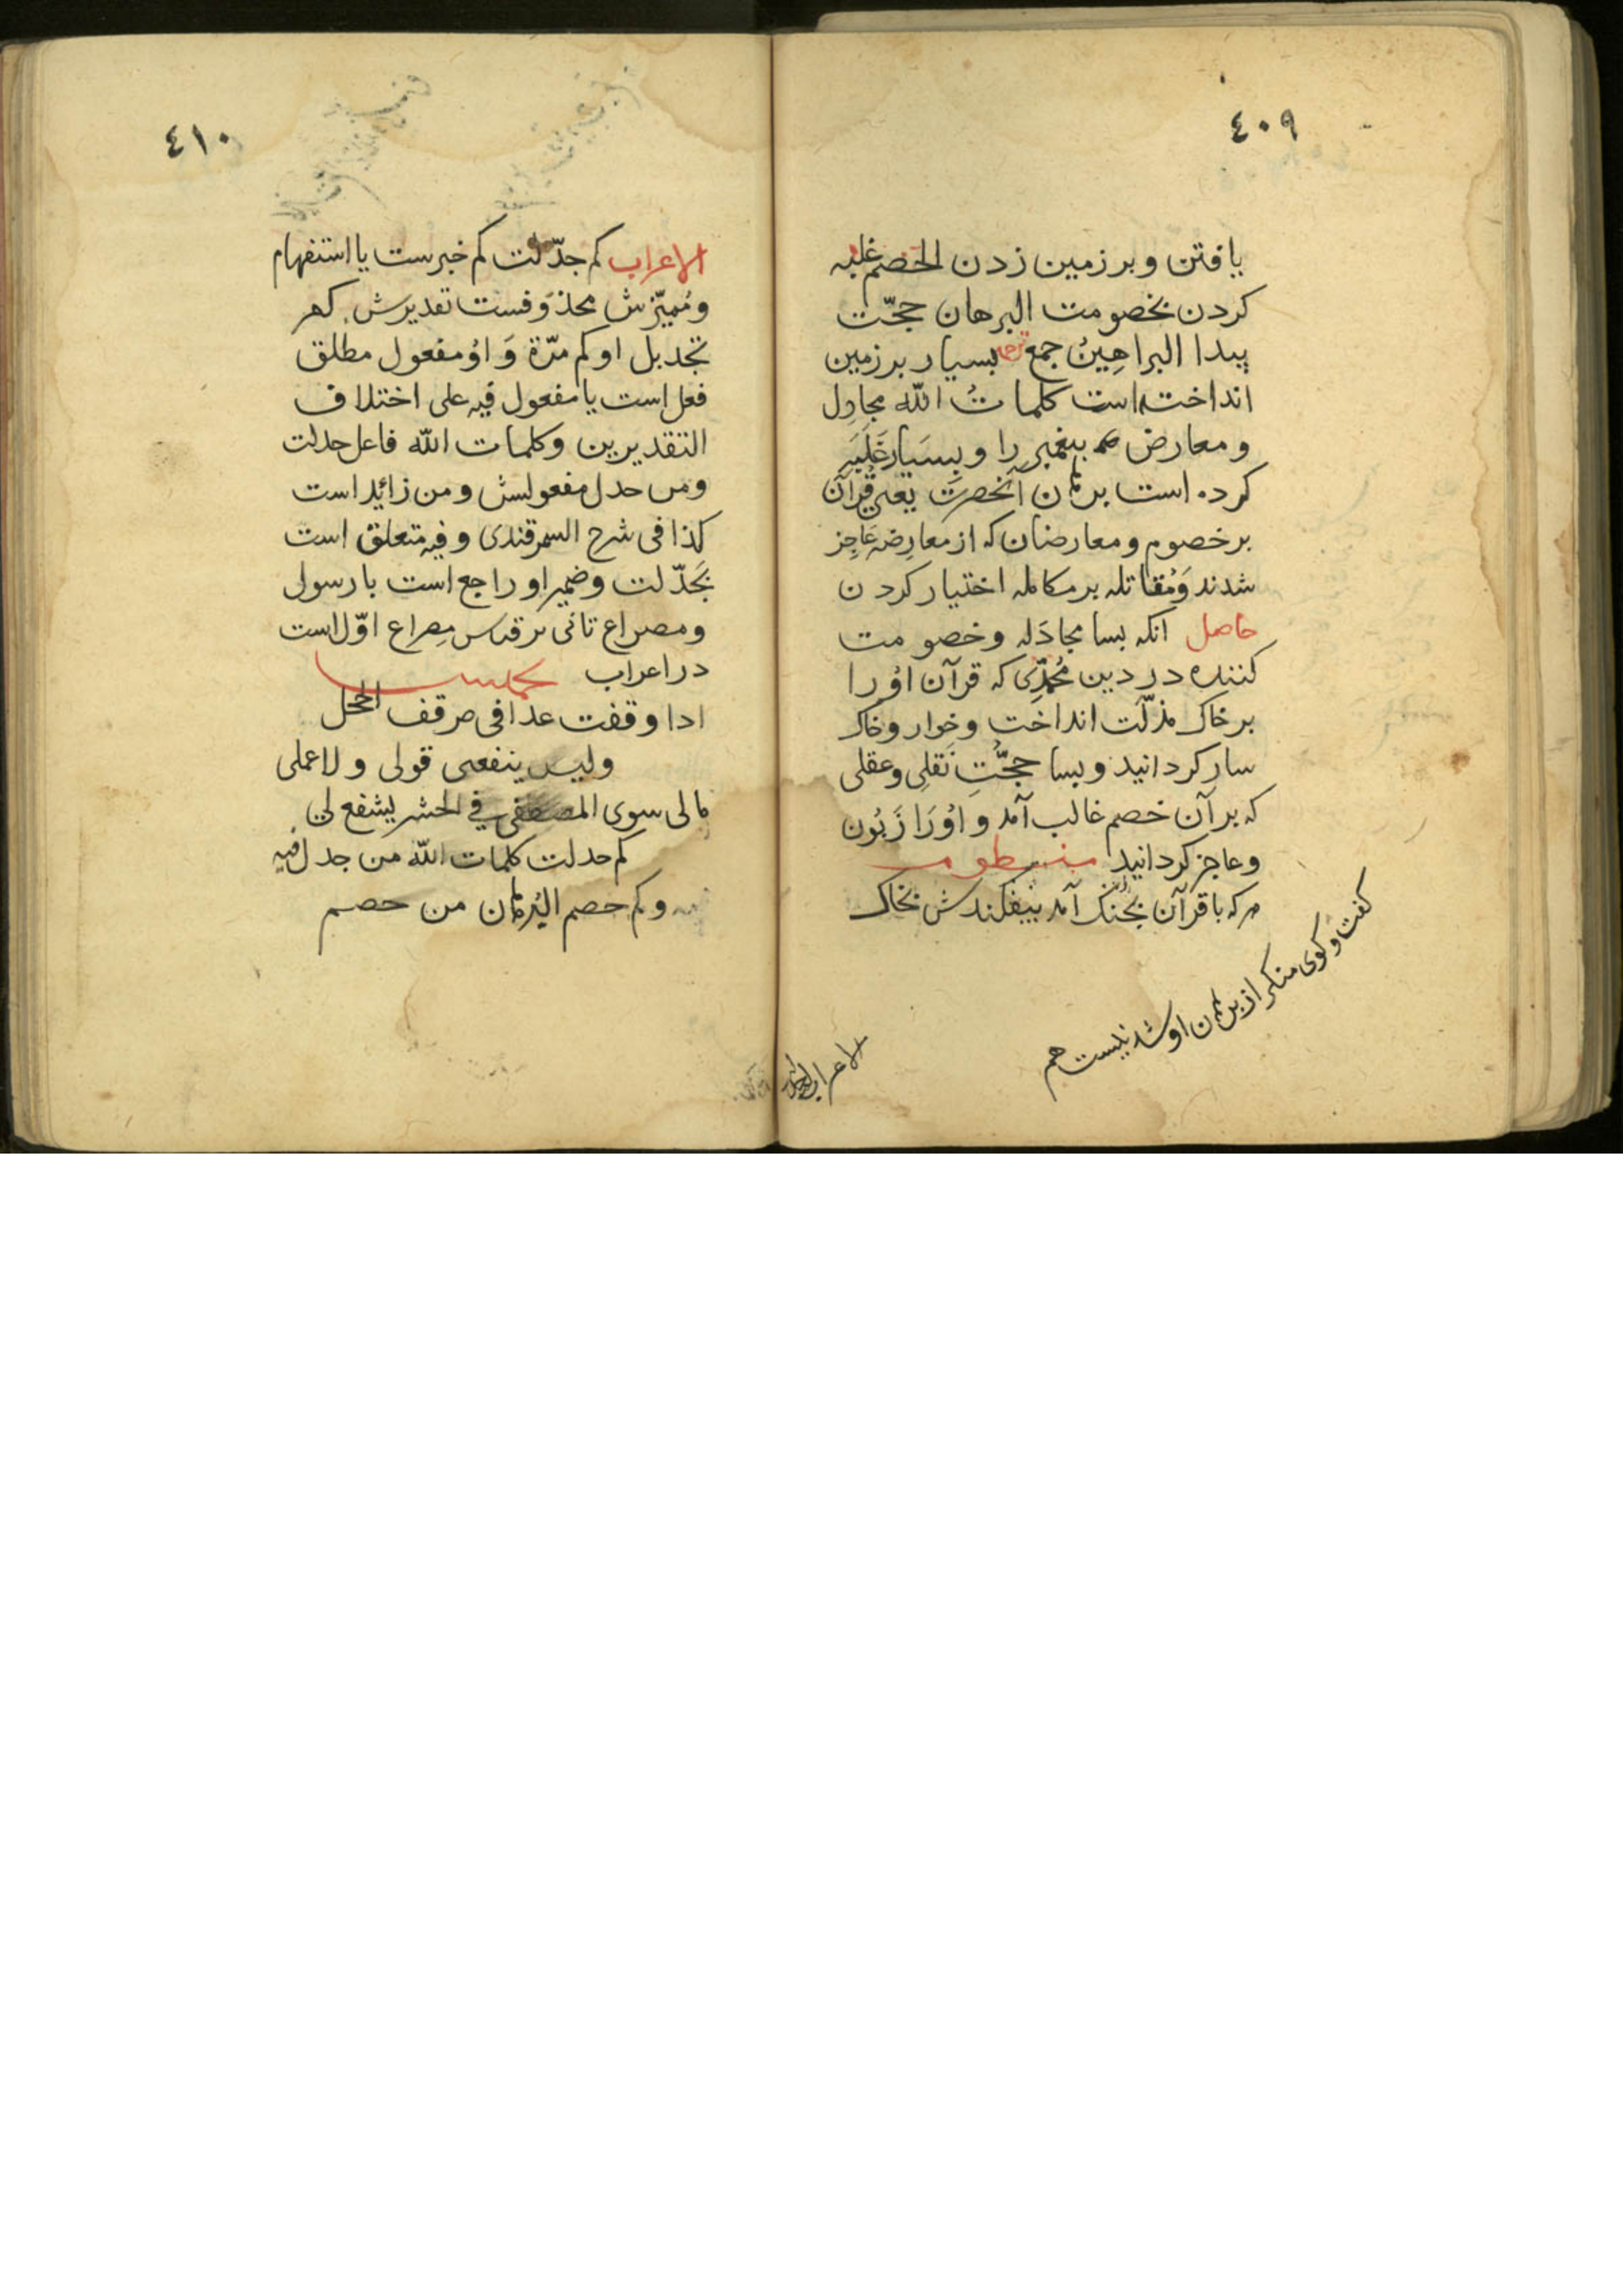 ٤٠٩
يافتن وبر زمين زدن الخصم غلبه
كردن بخصومت البرهان حجّت
پيدا البراهِينُ جمع ترجمه بسيار بر زمين
انداخته است كلماتُ اللّه مجادِل
ومعارض پيغمبر را وبِسيَار غَلَبَه
كرده است برهان آنحضرت يعنى قُرآن
بر خصوم ومعارضان كه از معارِضه عَاجِز
شدند وَمُقاتله بر مكالمه اختيار كردن
حاصل آنكه بسا مجادَله وخصومت
كننده در دين مُحمّدِى كه قرآن اوُ را
بر خاك مذلّت انداخت وخوار وخاك
سار كردانيد وبسا حجّتِ نَقلِى وعقلى
كه بر آن خصم غالب آمد و اوُرَا زَبُون
وعاجز كردانيد منظومه
هر كه با قرآن بجُنك آمد بيفكندش بخاك
كفت وكوى منكر از برهان او شد نيست هم
الاعراب
٤١٠
الاعراب كم جدّلت كم خبرست يا استفهام
ومُميّزش محذوفست تقديرش كم
تجديل او كم مرّة وَ اوُ مفعول مطلق
فعل است يا مفعول فيه على اختلاف
التقديرين وكلمات اللّه فاعل جدلت
ومن جدل مفعولش ومن زائد است
كذا فى شرح السمرقندى وفيه متعلق است
بَجَدّلت وضمير او راجع است با رسول
ومصراع ثانى بر قياس مِصراع اوّل است
در اعراب تخميس
ادا وقفت غدا فى موقف الخجل
وليس ينفعنى قولى ولا عملى
مالى سوى المصطفى فِي الحشر يشفع لى
كم جدلت كلمات اللّه من جدل فيه
وكم خصم البُرهان من خصم